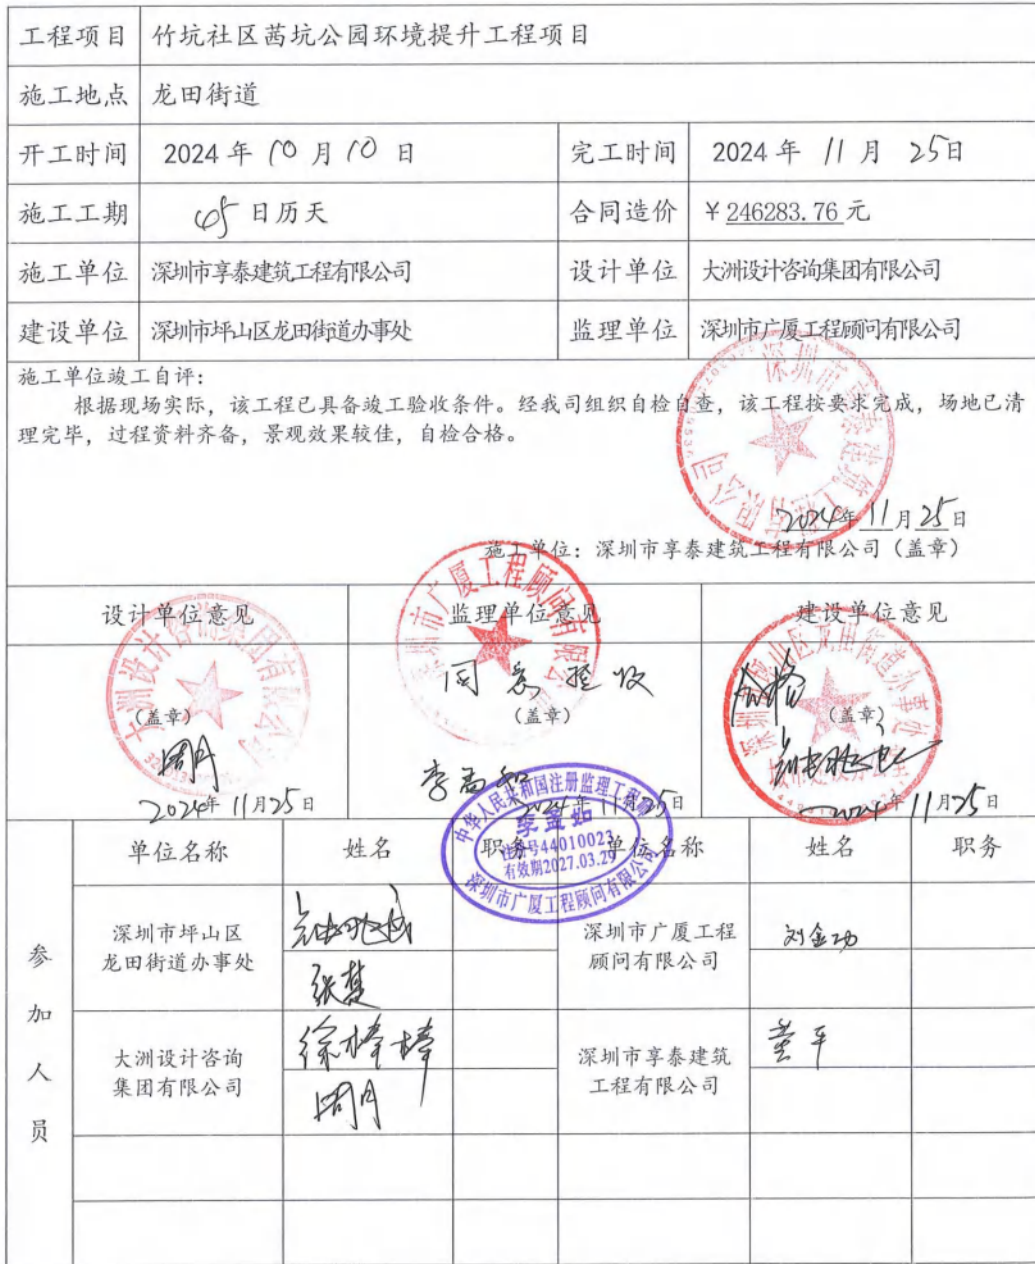 工程项目 竹坑社区茜坑公园环境提升工程项目
施工地点 龙田街道
开工时间 2024 年 10 月 10 日 完工时间 2024 年 11 月 25日
施工工期 45 日历天 合同造价 ￥246283.76 元
施工单位 深圳市享泰建筑工程有限公司 设计单位 大洲设计咨询集团有限公司
建设单位 深圳市坪山区龙田街道办事处 监理单位 深圳市广厦工程顾问有限公司
施工单位竣工自评：
根据现场实际，该工程已具备竣工验收条件。经我司组织自检自查，该工程按要求完成，场地已清
理完毕，过程资料齐备，景观效果较佳，自检合格。
深圳市享泰建筑工程有限公司
2024年 11 月 25 日
施工单位：深圳市享泰建筑工程有限公司（盖章）
设计单位意见 监理单位意见 建设单位意见
大洲设计咨询集团有限公司
深圳市广厦工程顾问有限公司
深圳市坪山区龙田街道办事处
同意验收 合格
（盖章） （盖章） （盖章）
周月
李孟和
2024年 11月25日 2024年 11月25日 2024年 11月25日
中华人民共和国注册监理工程师
李孟如
注册号44010023
有效期2027.03.29
深圳市广厦工程顾问有限公司
单位名称 姓名 职务 单位名称 姓名 职务
参加人员
深圳市坪山区
龙田街道办事处
张楚
深圳市广厦工程
顾问有限公司
刘金功
大洲设计咨询
集团有限公司
徐棒棒
周月
深圳市享泰建筑
工程有限公司
董平